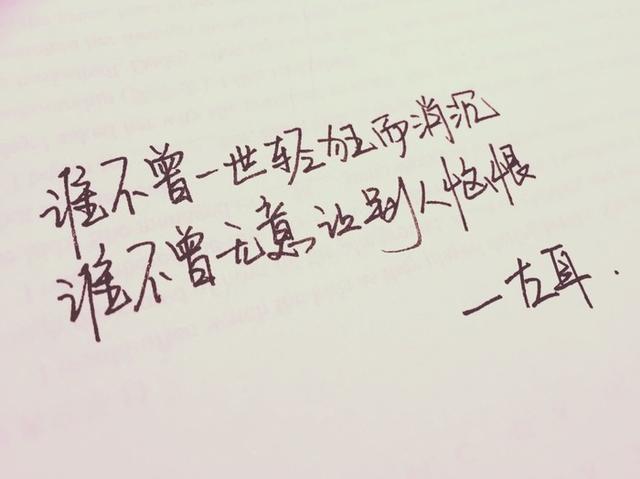 谁不曾一世轻狂而消沉
谁不曾无意让别人怄恨
一左耳.